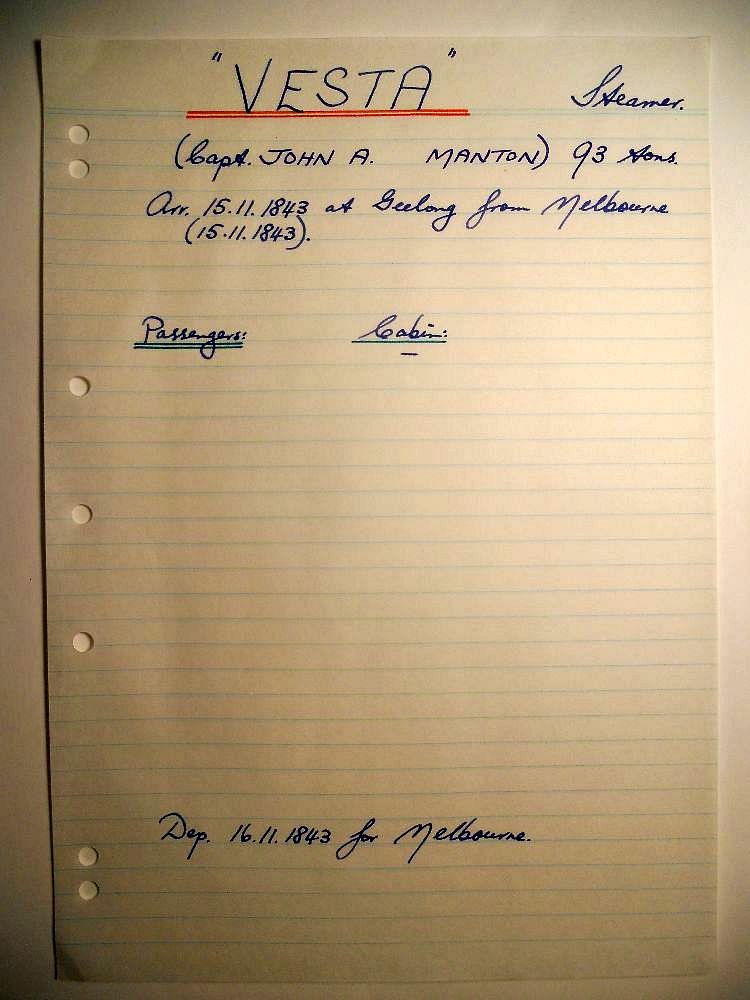 "VESTA" Steamer.
(Capt. JOHN A. MANTON) 93 tons.
Arr. 15.11.1843 at Geelong from Melbourne
(15.11.1843).
Passengers: Cabin:
—
Dep. 16.11.1843 for Melbourne.